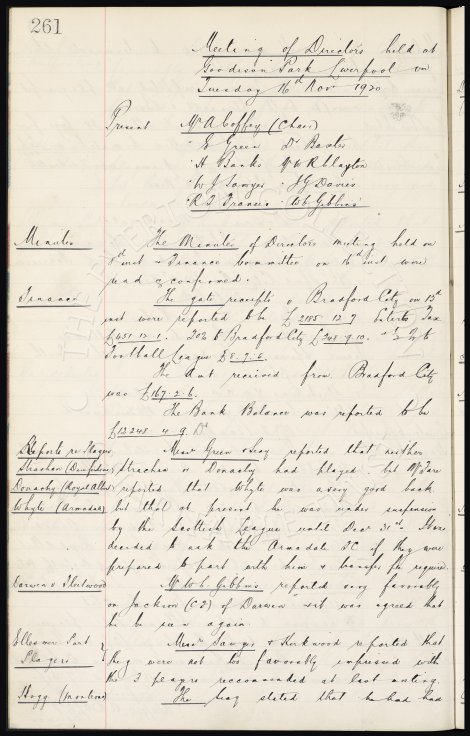 261
Meeting of Directors held at
Goodison Park Liverpool on
Tuesday 16th Nov 1920
Present Mr A Coffey (Chair)
" E Green Dr Baxter
" H Banks Mr W R Clayton
" W J Sawyer " J G Davies
" R T Francis " W C Gibbins
Minutes The Minutes of Directors meeting held on
inst & Finance Committee on 16th inst were
read & confirmed.
Finance The gate receipts v Bradford City on 13th
inst were reported to be £2185. 13. 9 Enterts Tax
£451. 12. 1. 20% to Bradford City & to
Football League
The Amt received from Bradford City
was £167. 2. 6.
The Bank Balance was reported to be
£13248 4. 9. Dr
Reports re Players Messrs Green & Secy reported that neither
Strachan (Dunfermline) Strachan or Donaghy had played but Mr
Donachy (Royal Albert) reported that Whyte was a very good back
Whyte (Armadale) but that at present he was under suspension
by the Scottish League until Decr 31st. It was
decided to ask the Armadale FC if they were
prepared to part with him & transfer fee required
Darwen v Fleetwood Mr W C Gibbins reported very favorably
on Jackson of Darwen & it was agreed that
he be seen again.
Ellesmere Port Messrs Sawyer & Kirkwood reported that
Players they were not too favorably impressed with
the 3 players reccomended at last meeting.
Hogg (Montrose) The Secy stated that he had had